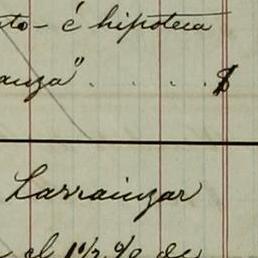 sto - é hipoteca
anza" . . . . $
Larrainzar
el 1 1/2 % de